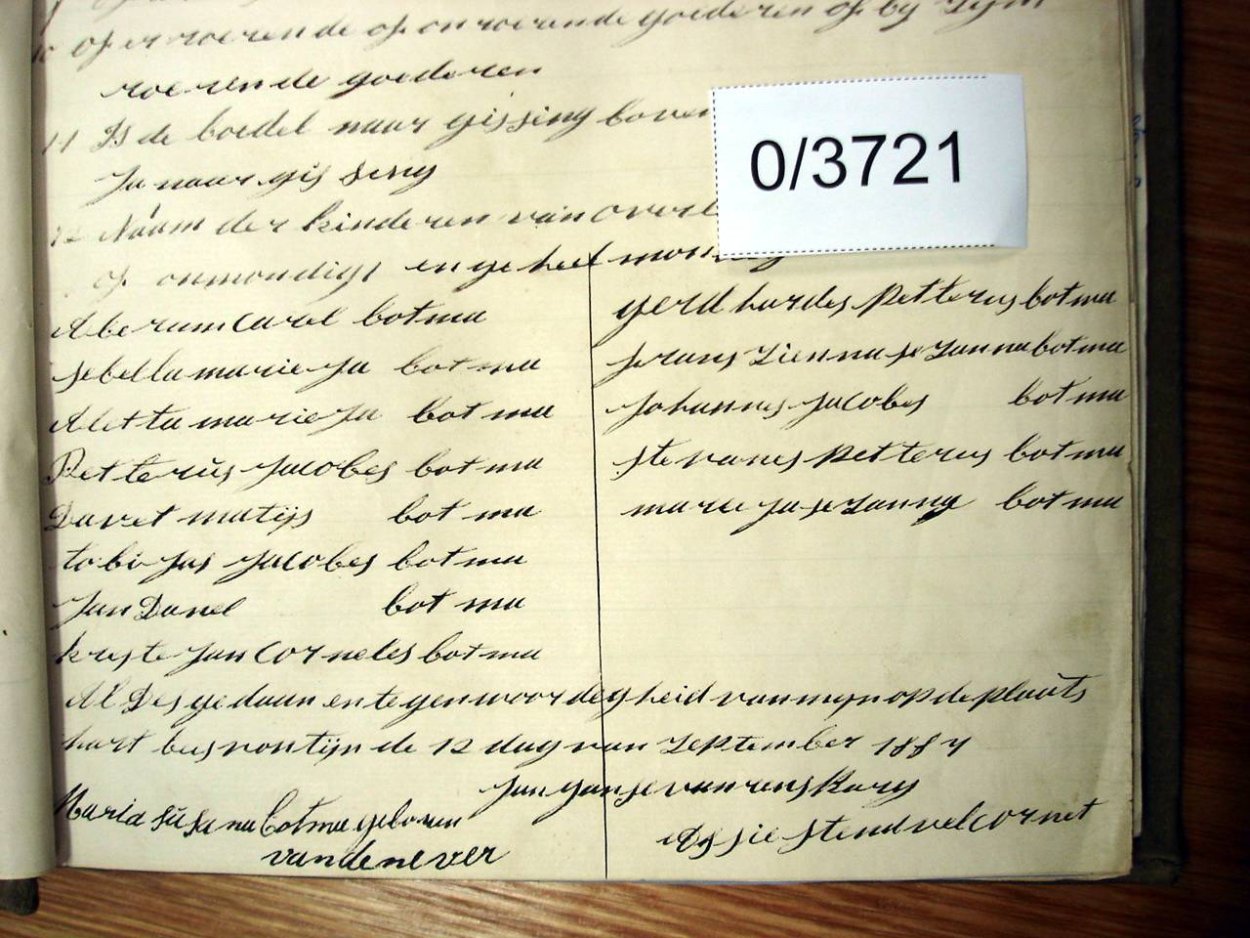 10 of er roerende of onroerende goederen of by Lyn
roerende goederen
11 Is de boedel naar gissing boven
Ja naar gis sing
12 Náám der kinderen van overl
of onmondigt en geheel mondig
0/3721
Aberam Carel botma
Jsebella marie Ja botma
Aletta marie Ja botma
Petterús Jacobes botma
Davet matijs botma
tobi Jas Jacobes botma
Jan Danel botma
kryste Jan Corneles botma
gerd hardes Petterus botma
frans Zienna se Zanna botma
Johannes Jacobes botma
stevanes Petterus botma
marie Ja se Zanna botma
Al Des gedaan en tegenwoordegheid van myn op de plaats
hart bees vontijn de 12 dag van September 1884
Jan yanse van renskurg
Maria Súsanna botma geboren
van denever
As sie stend velcornet